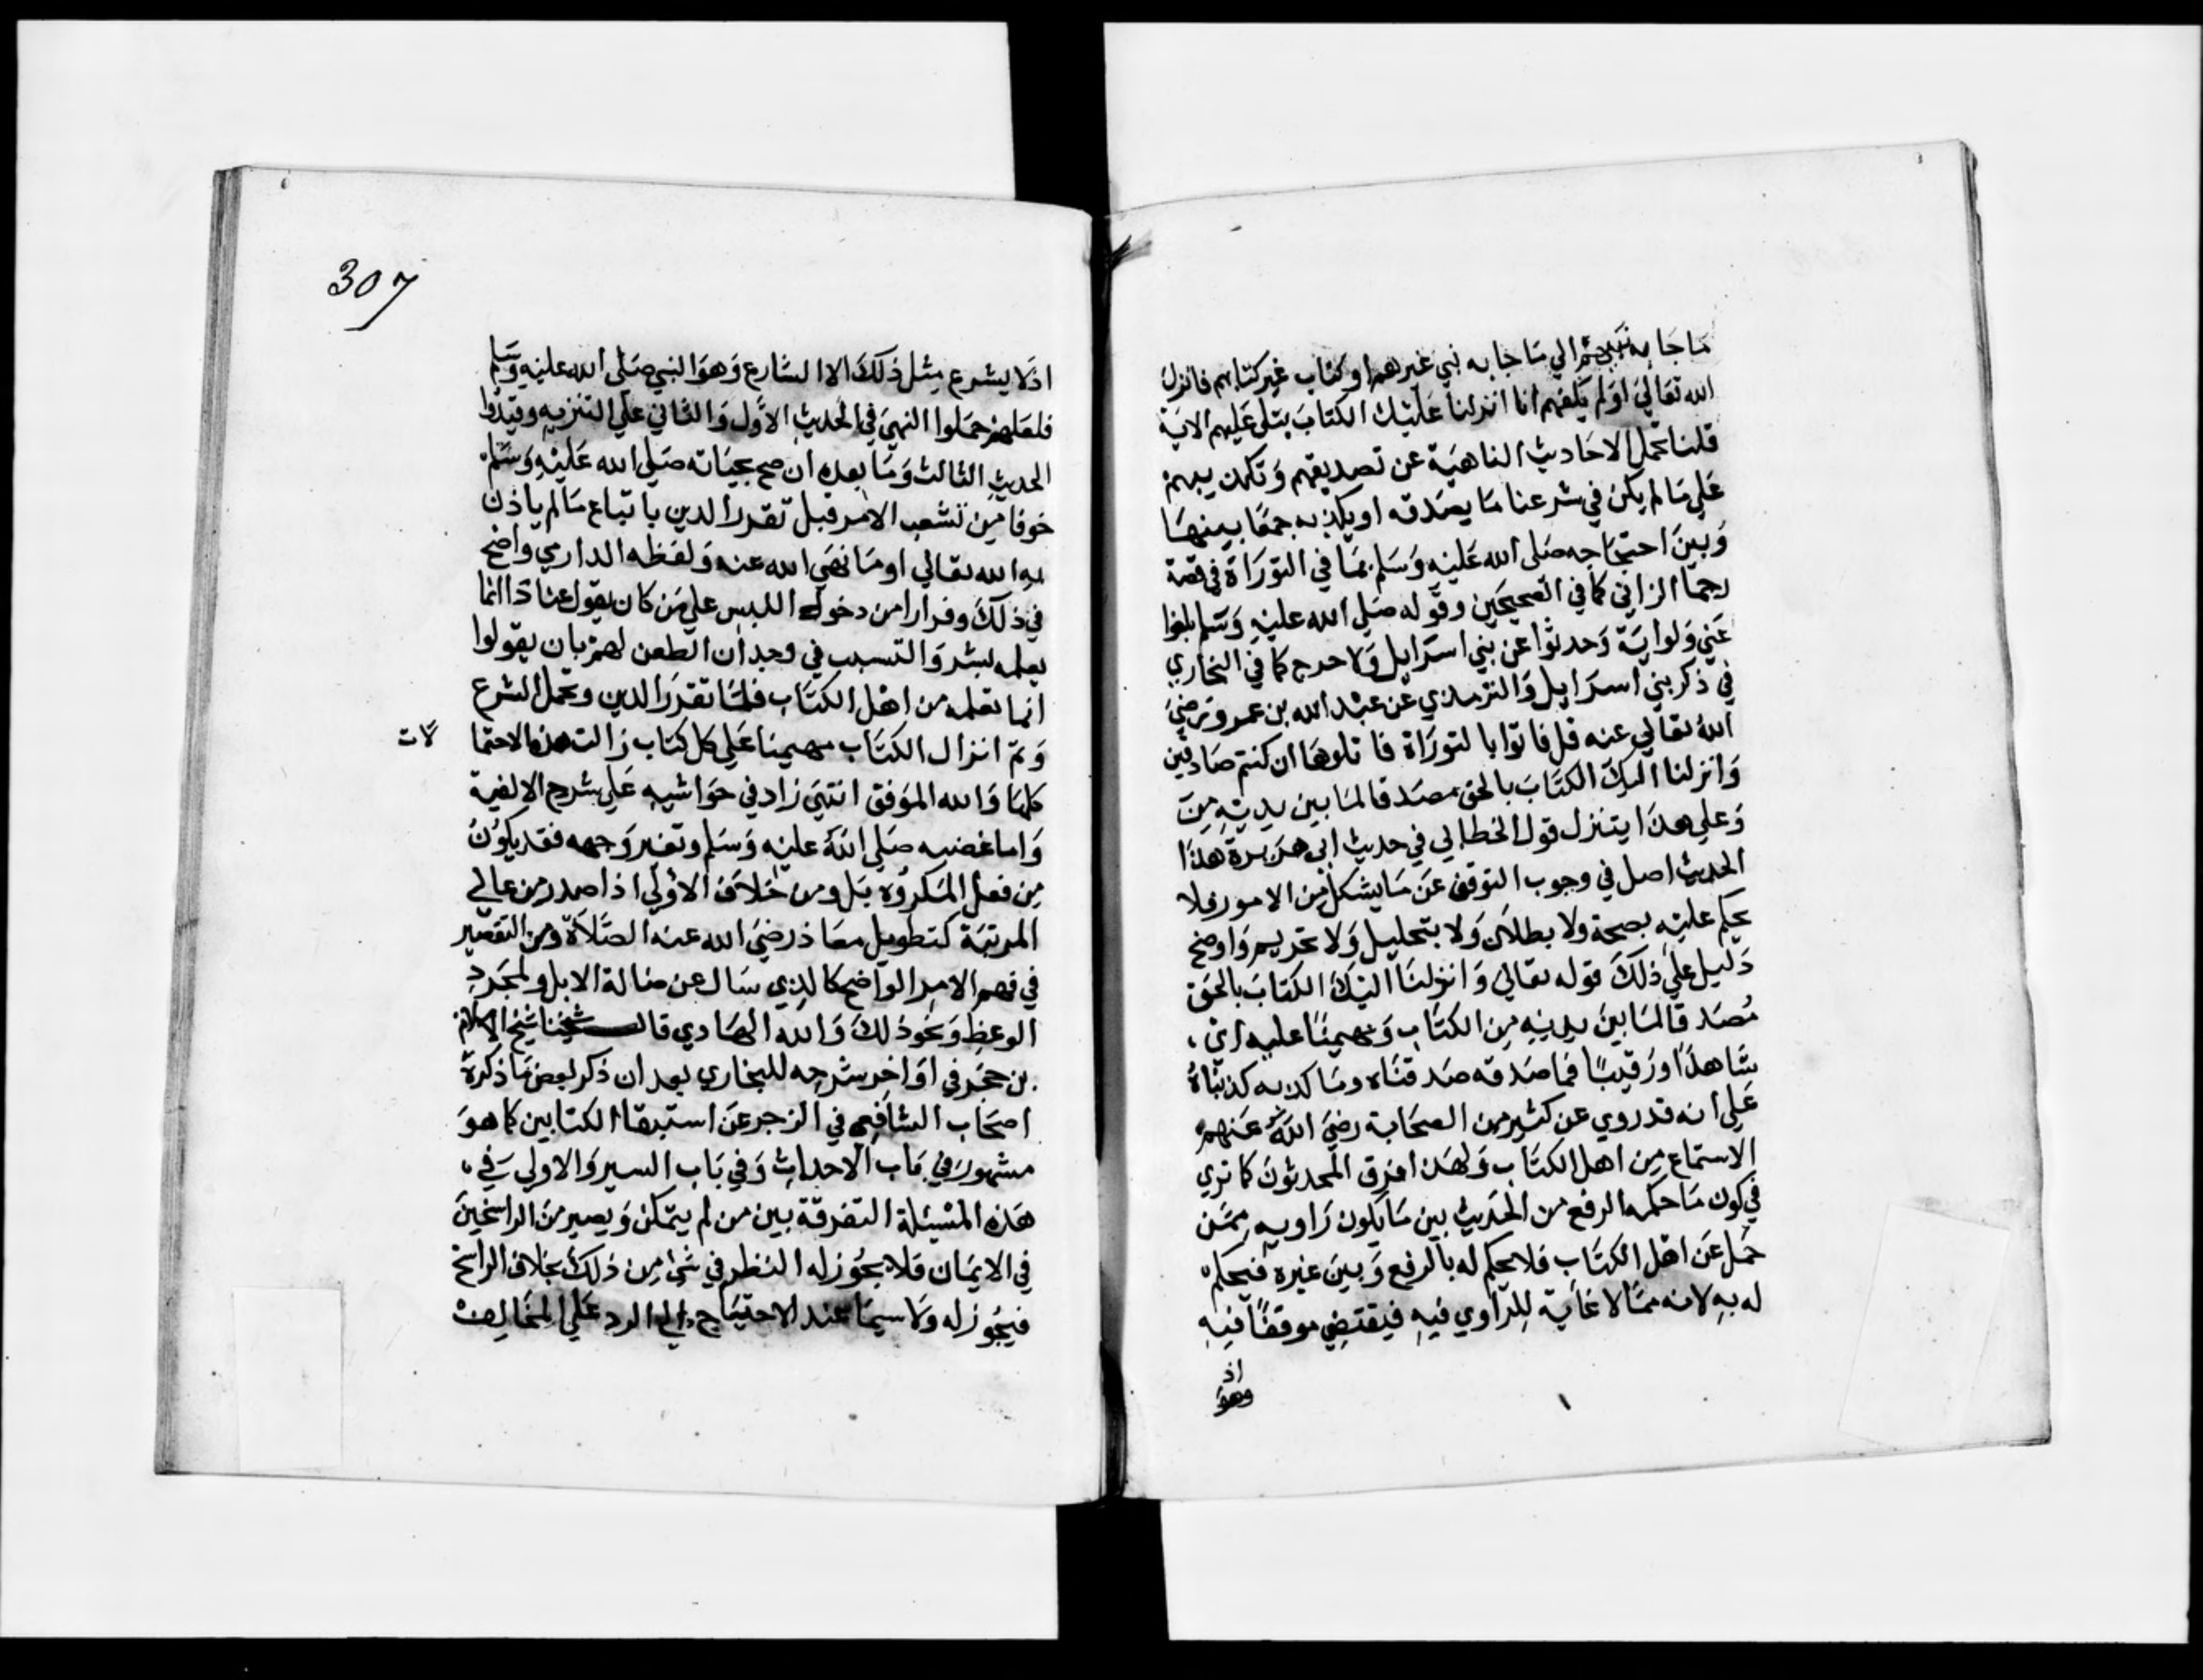 ما جا به نبيهم الي ما جا به نبي غيرهم او كتاب غير كتابهم فانزل
الله تعالي اولم يكفهم انا انزلنا عليك الكتاب يتلي عليهم الاية
قلنا تحمل الاحاديث الناهية عن تصديقهم وتكذيبهم
علي ما لم يكن في شرعنا ما يصدقه او يكذبه جمعا بينها
وبين احتجاجه صلي الله عليه وسلم بما في التوراة في قصة
رجم الزاني كما في الصحيحين وقوله صلي الله عليه وسلم بلغوا
عني ولو اية وحدثوا عن بني اسرايل ولا حرج كما في البخاري
في ذكر بني اسرايل والترمذي عن عبد الله بن عمرو رضي
الله تعالي عنه قل فاتوا بالتوراة فاتلوها ان كنتم صادقين
وانزلنا اليك الكتاب بالحق مصدقا لما بين يديه من
وعلي هذا يتنزل قول الخطابي في حديث ابي هريرة هذا
الحديث اصل في وجوب التوقف عن ما يشكل من الامور فلا
يحكم عليه بصحة ولا بطلان ولا بتحليل ولا تحريم واوضح
دليل علي ذلك قوله تعالي وانزلنا اليك الكتاب بالحق
مصدقا لما بين يديه من الكتاب ومهيمنا عليه اي
شاهدا ورقيبا فما صدقه صدقناه وما كذبه كذبناه
علي انه قد روي عن كثير من الصحابة رضي الله عنهم
الاستماع من اهل الكتاب ولهذا فرق المحدثون كما تري
في كون ما حكمه الرفع من الحديث بين ما يكون راويه ممن
حمل عن اهل الكتاب فلا يحكم له بالرفع وبين غيره فيحكم
له به لانه مما لا غاية للراوي فيه فيقتضي موقفا فيه
اذ
وهو
307
اذ لا يشرع مثل ذلك الا الشارع وهو النبي صلي الله عليه وسلم
فلعلهم حملوا النهي في الحديث الاول والثاني علي التنزيه وقيدوا
الحديث الثالث وما بعده ان صح بحياته صلي الله عليه وسلم
خوفا من تشعب الامر قبل تقرر الدين باتباع ما لم ياذن
به الله تعالي او ما نهي الله عنه ولفظه الدارمي واضح
في ذلك وفرارا من دخول اللبس علي من كان يقول عنادا انما
يعلمه بشر والتسبب في وجدان الطعن لهم بان يقولوا
انما تعلمه من اهل الكتاب فلما تقرر الدين وتحمل الشرع
وتم انزال الكتاب مهيمنا علي كل كتاب زالت هذه الاحتما لات
كلها والله الموفق انتهي زاد في حواشيه علي شرح الالفية
واما غضبه صلي الله عليه وسلم وتغير وجهه فقد يكون
من فعل المكروه بل ومن خلاف الاولي اذا صدر من عالي
المرتبة كتطويل معاذ رضي الله عنه الصلاة ومن التقصير
في فهم الامر الواضح كالذي سال عن ضالة الابل ولمجرد
الوعظ ونحو ذلك والله الهادي قال شيخنا شيخ الاسلام
بن حجر في اواخر شرحه للبخاري بعد ان ذكر بعض ما ذكره
اصحاب الشافعي في الزجر عن استبقا الكتابين كما هو
مشهور في باب الاحداث وفي باب السير والاولي في
هذه المسئلة التفرقة بين من لم يتمكن ويصير من الراسخين
في الايمان فلا يجوز له النظر في شي من ذلك بخلاف الراسخ
فيجوز له ولا سيما عند الاحتياج الي الرد علي المخالف